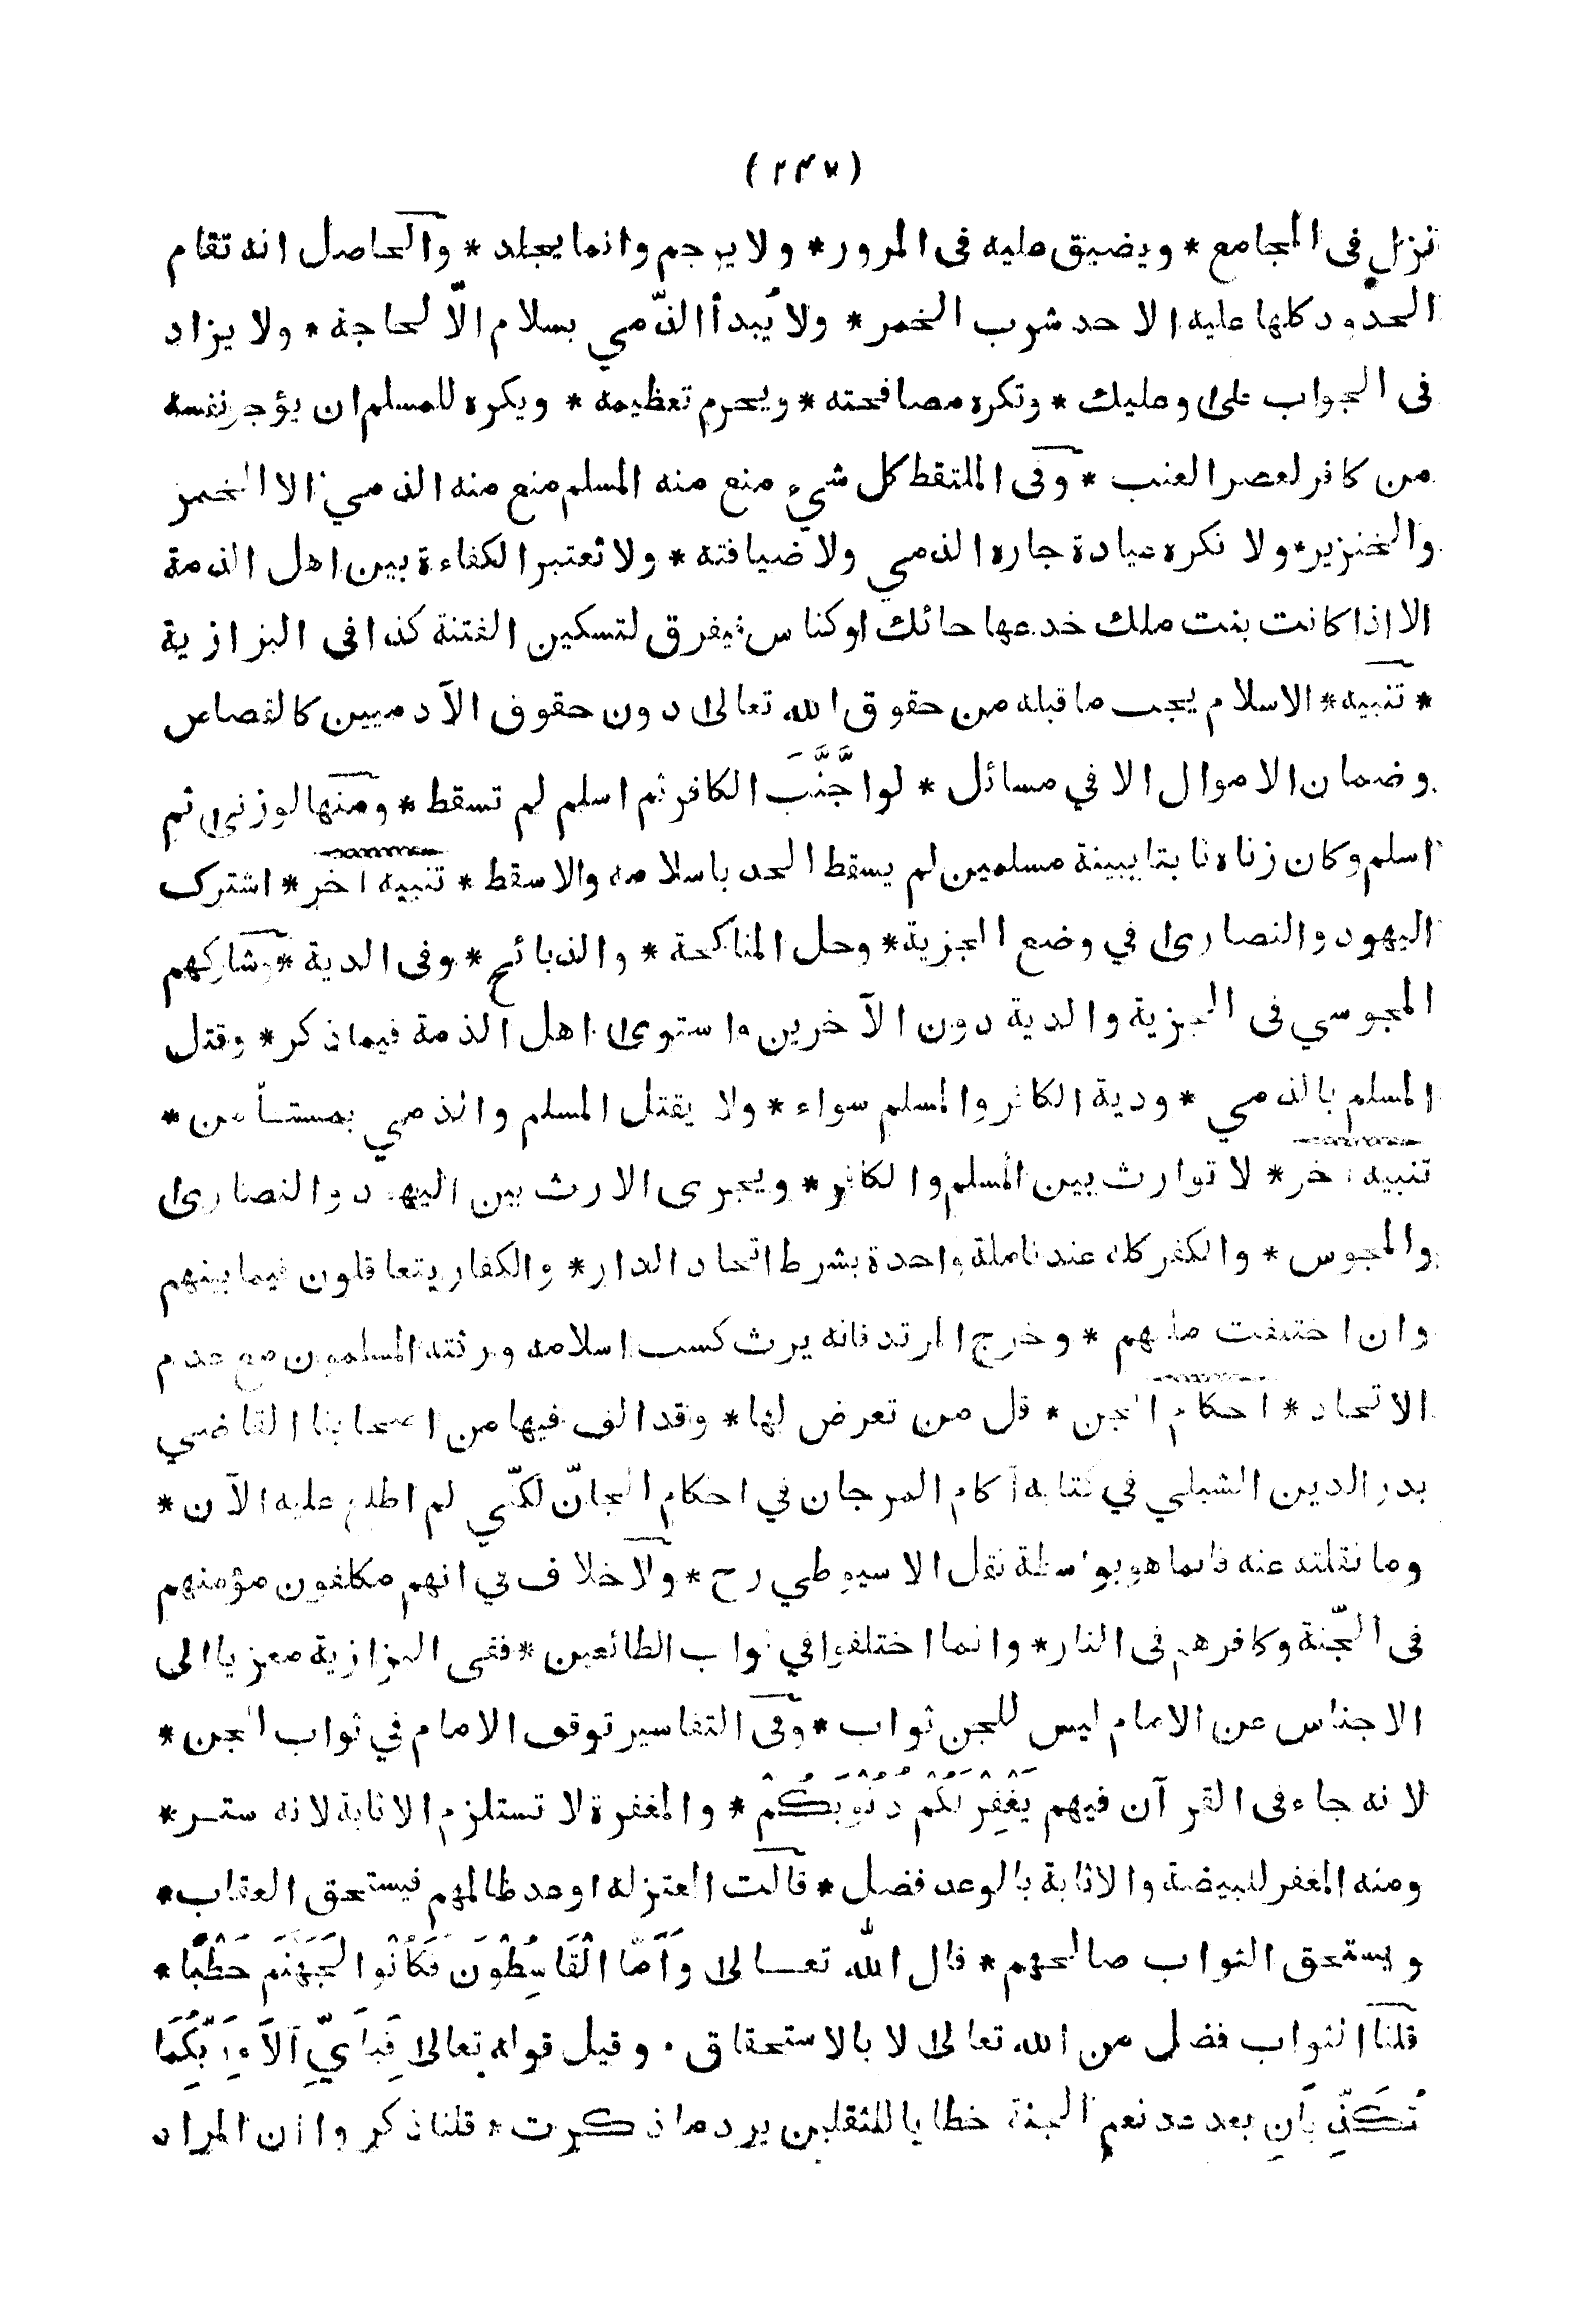 (٢٣٧)
نزل فى المجامع * ويضيق عليه فى المرور * ولا يرجم وانما يجلد * والحاصل انه تقام
الحدود كلها عليه الا حد شرب الخمر * ولا يُبدأ الذّمي بسلام الّا لحاجة * ولا يزاد
فى الجواب على وعليك * وتكره مصافحته * ويحرم تعظيمه * ويكره للمسلم ان يؤجر نفسه
من كافر لعصر العنب * وفى الملتقط كل شيء منع منه المسلم منع منه الذمي الا الخمر
والخنزير * ولا نكره عيادة جاره الذمي ولا ضيافته * ولا تُعتبر الكفاءة بين اهل الذمة
الا اذا كانت بنت ملك خدعها حائك او كناس فيفرق لتسكين الفتنة كذا فى البزازية
* تنبيه * الاسلام يجب ما قبله من حقوق الله تعالى دون حقوق الآدميين كالقصاص
وضمان الاموال الا في مسائل * لو اجَّنَّبَ الكافر ثم اسلم لم تسقط * ومنها لو زنى ثم
اسلم وكان زناه ثابتا ببينة مسلمين لم يسقط الحد باسلامه والا سقط * تنبيه اخر * اشترك
اليهود والنصارى في وضع الجزية * وحل المناكحة * والذبائح * وفى الدية * وشاركهم
المجوسي فى الجزية والدية دون الآخرين واستوى اهل الذمة فيما ذكر * وقتل
المسلم بالذمي * ودية الكافر والمسلم سواء * ولا يقتل المسلم والذمي بمستأمن *
تنبيه اخر * لا توارث بين المسلم والكافر * ويجرى الارث بين اليهود والنصارى
والمجوس * والكفر كله عندنا ملة واحدة بشرط اتحاد الدار * والكفار يتعاقلون فيما بينهم
وان اختلفت مللهم * وخرج المرتد فانه يرث كسب اسلامه ورثته المسلمون مع عدم
الاتحاد * احكام الجن * قل من تعرض لها * وقد الف فيها من اصحابنا القاضي
بدر الدين الشبلي في كتابه آكام المرجان في احكام الجانّ لكنّي لم اطلع عليه الآن *
وما نقلته عنه فانما هو بواسطة نقل الاسيوطي رح * ولا خلاف في انهم مكلفون مؤمنهم
فى الجّنة وكافرهم فى النار * وانما اختلفوا في ثواب الطائعين * ففى البزازية معزيا الى
الاجناس عن الامام ليس للجن ثواب * وفى التفاسير توقف الامام في ثواب الجن *
لانه جاء فى القرآن فيهم يَغْفِرْ لَكُمْ ذُنُوبَكُمْ * والمغفرة لا تستلزم الاثابة لانه ستر *
ومنه المغفر للبيضة والاثابة بالوعد فضل * قالت المعتزله اوعد ظالمهم فيستحق العقاب *
ويستحق الثواب صالحهم * قال الله تعالى وَاَمّا الْقَاسِطُوْنَ فَكَانُوْا لِجَهَنَّمَ حَطَبًا *
قلنا الثواب فضل من الله تعالى لا بالاستحقاق * وقيل قوله تعالى فَبِاَيِّ آلَاءِ رَبِّكُمَا
تُكَذِّبَانِ بعد عد نعم الجنة خطابا للثقلين يرد ما ذكرت * قلنا ذكروا ان المراد